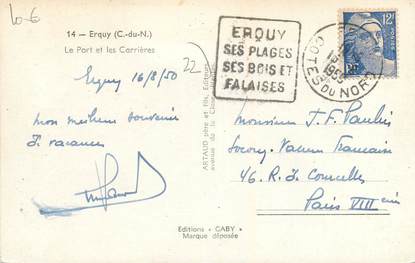 10-6
14 — Erquy (C.-du-N.)
Le Port et les Carrières
Erquy 16/8/50
22
Mon meilleur souvenir
de vacances
ARTAUD père et fils, Editeurs
avenue de la
Editions "GABY"
Marque déposée
ERQUY
SES PLAGES
SES BOIS ET
FALAISES
1950
COTES DU NORD
12F
Monsieur J. F. Paulin
Socony-Vacuum Française
46. R. de Courcelles
Paris VIII eme